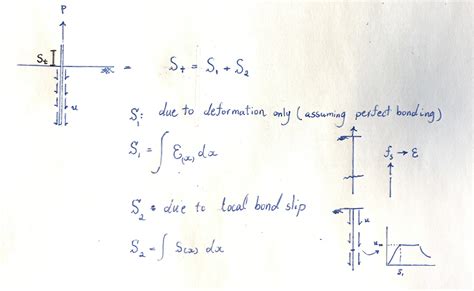 P
S_t
S_t = S_1 + S_2
u
S_1: due to deformation only (assuming perfect bonding)
S_1 = ∫ ε(x) dx
f_s → ε
S_2 : due to local bond slip
u
S_2 = ∫ S(x) dx
u
S_1